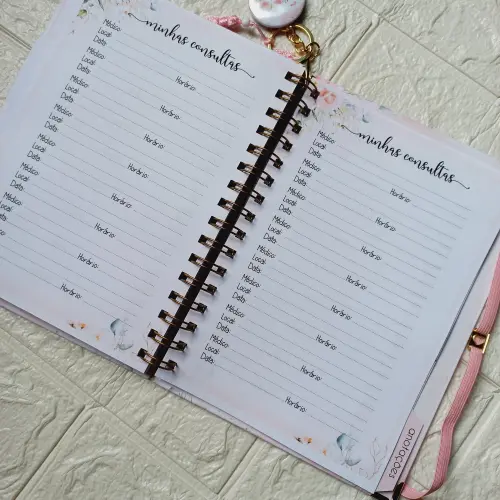 minhas consultas
Médico:
Local:
Data: Horário:
Médico:
Local:
Data: Horário:
Médico:
Local:
Data: Horário:
Médico:
Local:
Data: Horário:
Médico:
Local:
Data: Horário:
Médico:
Local:
Data: Horário:
Médico:
Local:
Data: Horário:
Horário:
minhas consultas
Médico:
Local:
Data: Horário:
Médico:
Local:
Data: Horário:
Médico:
Local:
Data: Horário:
Médico:
Local:
Data: Horário:
Médico:
Local:
Data: Horário:
Médico:
Local:
Data: Horário:
Médico:
Local:
Data: Horário:
Médico:
Local:
Data: Horário:
anotações